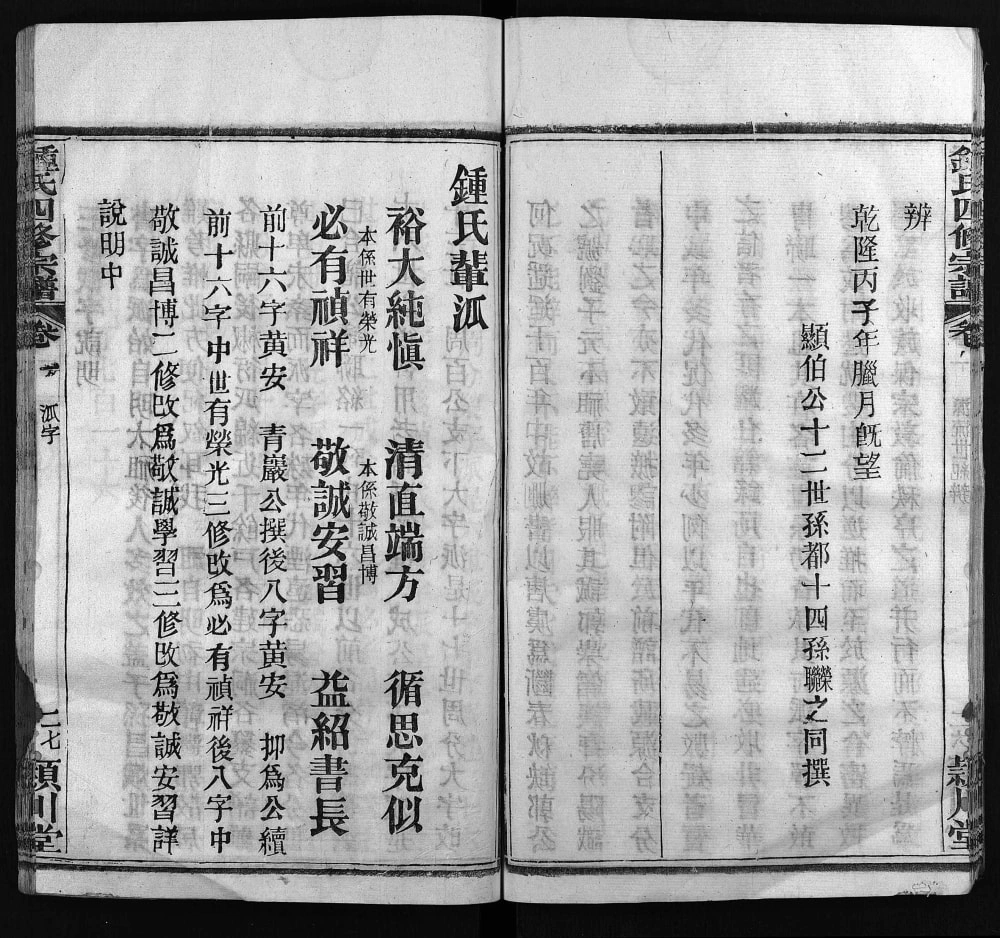 鍾氏四修宗譜
卷
辨
乾隆丙子年臘月旣望
顯伯公十二世孫都十四孫榮聯之同撰
潁川堂
鍾氏輩派
裕大純愼 清直端方 循思克似
本係世有榮光 本係敬誠昌博
必有禎祥 敬誠安習 益紹書長
前十六字黄安 青巖公撰後八字黄安 抑爲公續
前十六字中世有榮光三修改爲必有禎祥後八字中
敬誠昌博二修改爲敬誠學習三修改爲敬誠安習詳
說明中
鍾氏四修宗譜
卷一
派字
二七
潁川堂